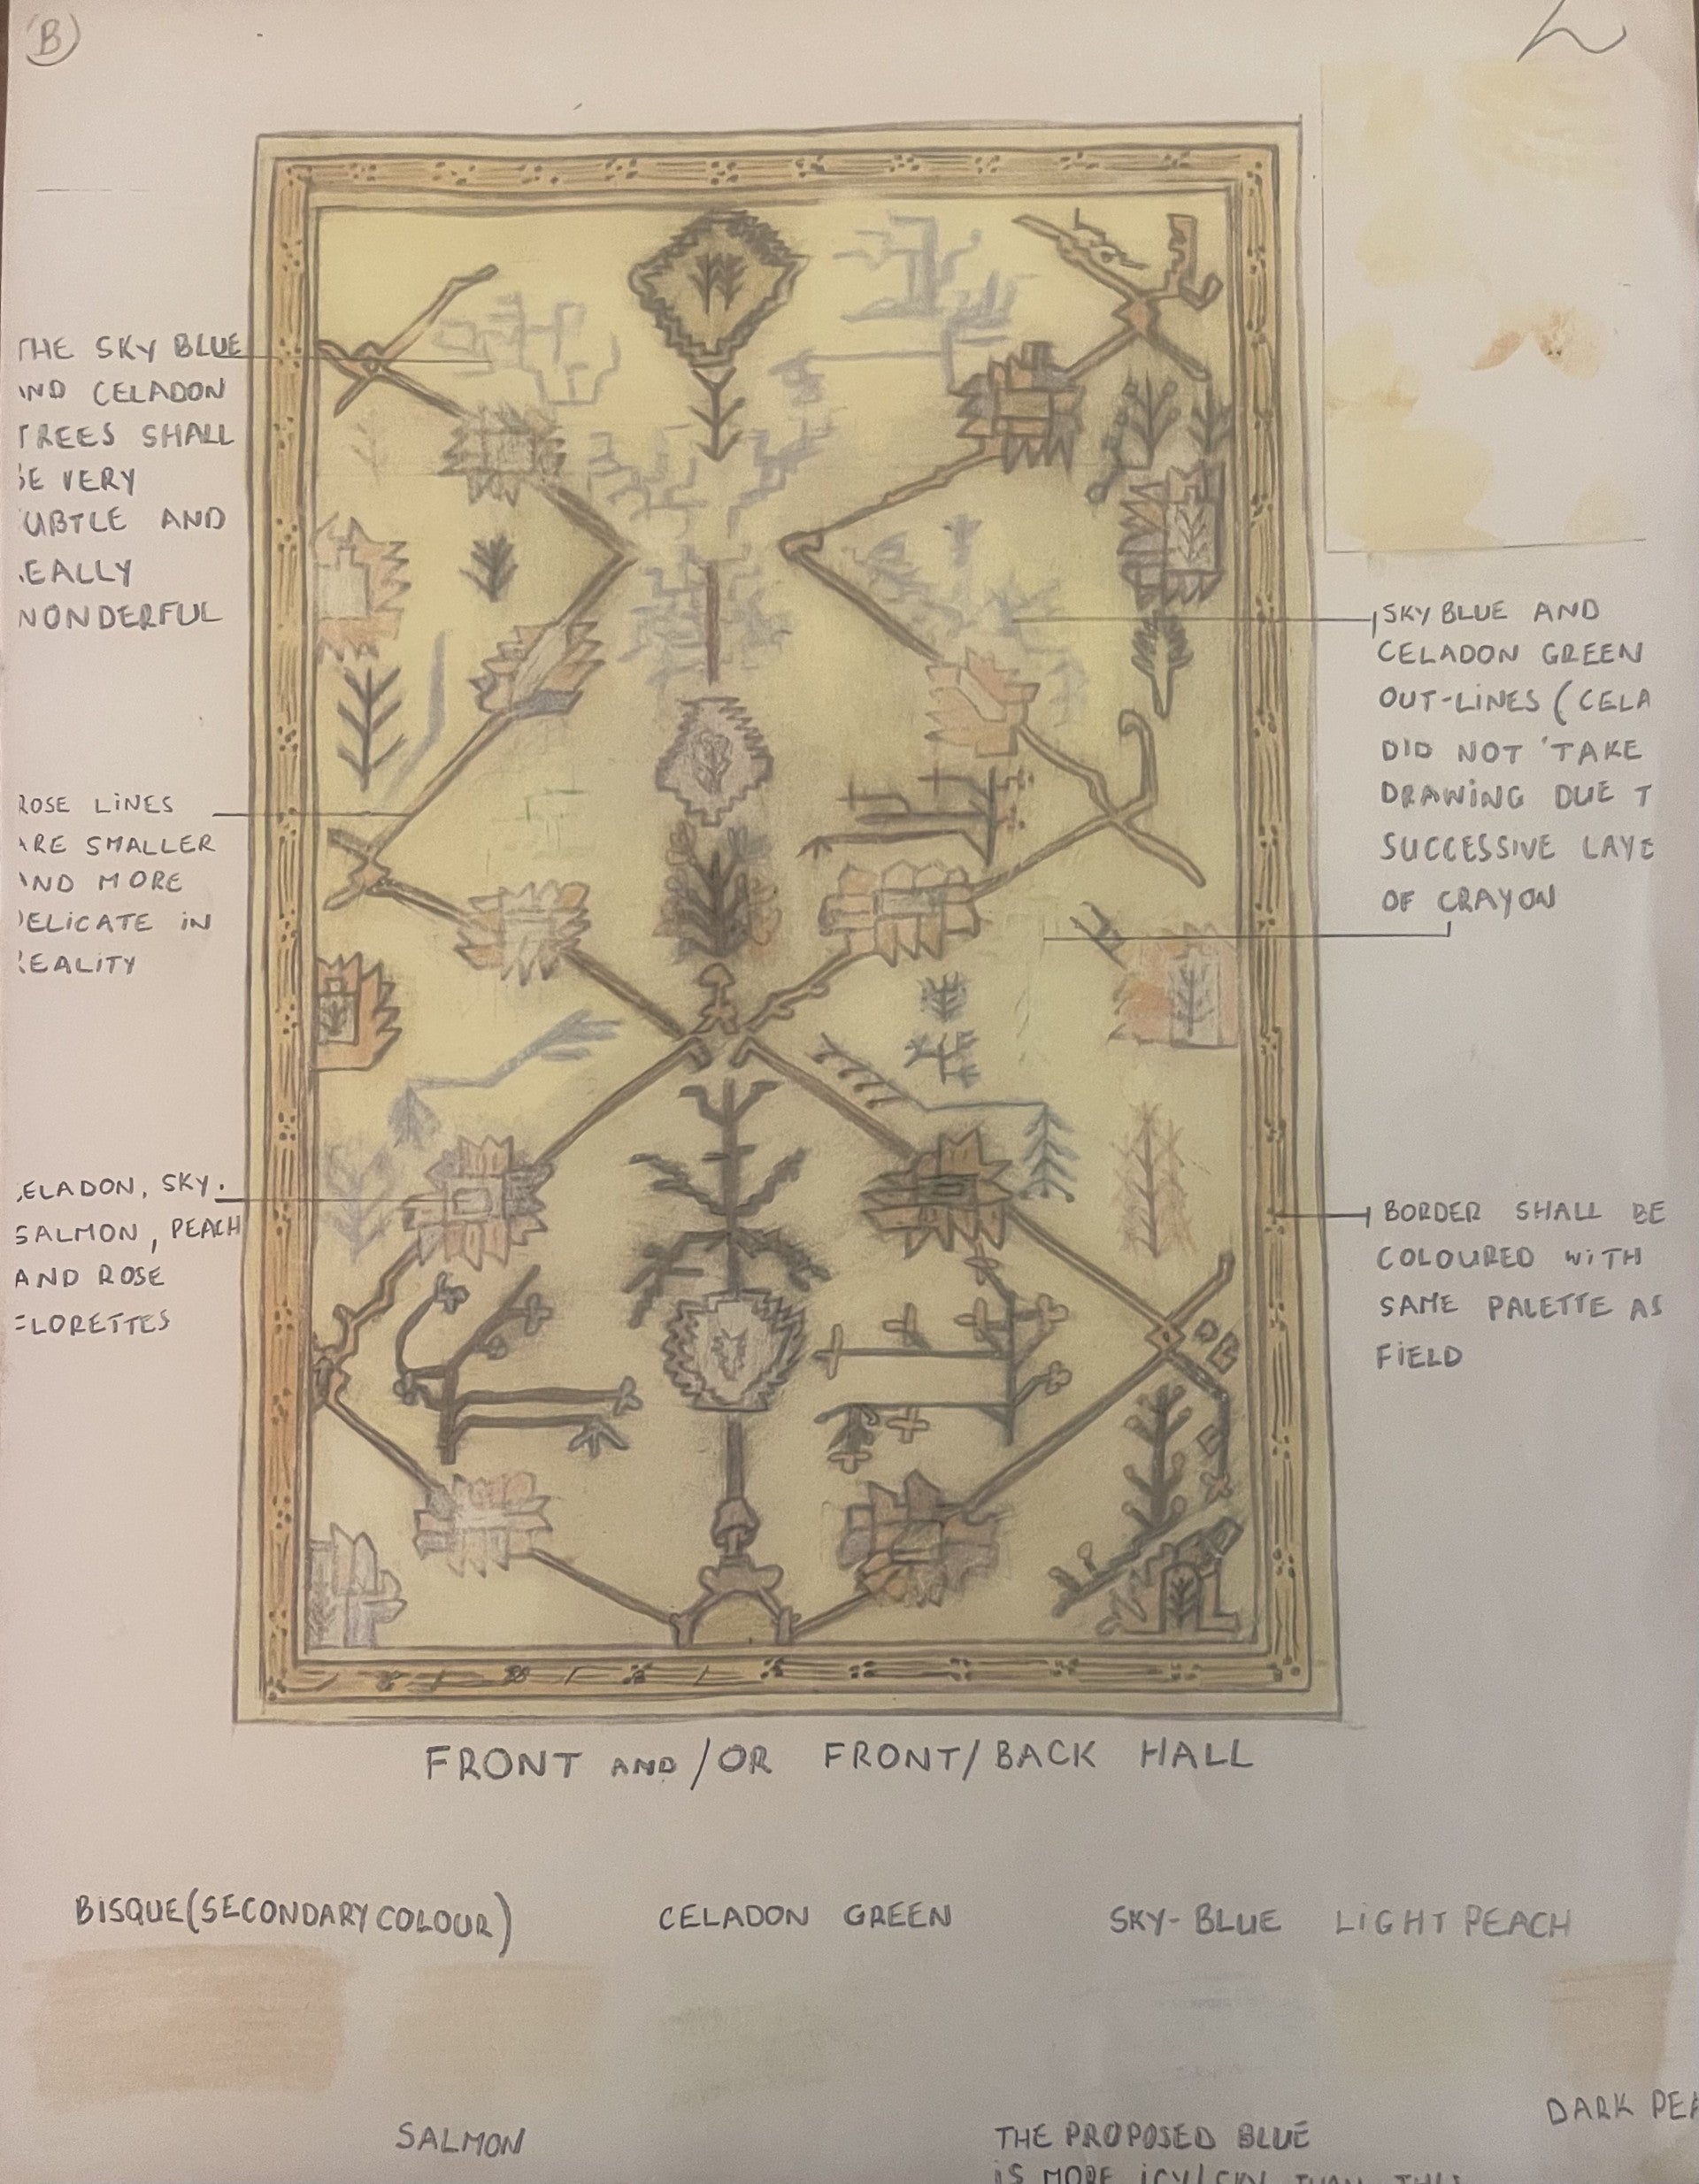 B
THE SKY BLUE
AND CELADON
TREES SHALL
BE VERY
UBTLE AND
EALLY
WONDERFUL
ROSE LINES
ARE SMALLER
AND MORE
DELICATE IN
REALITY
ELADON, SKY.
SALMON, PEACH
AND ROSE
FLORETTES
SKY BLUE AND
CELADON GREEN
OUT-LINES (CELA
DID NOT 'TAKE
DRAWING DUE T
SUCCESSIVE LAYE
OF CRAYON
BORDER SHALL BE
COLOURED WITH
SAME PALETTE AS
FIELD
FRONT AND/OR FRONT/BACK HALL
BISQUE(SECONDARY COLOUR) CELADON GREEN SKY-BLUE LIGHT PEACH
SALMON
DARK PEA
THE PROPOSED BLUE
IS MORE ICY/SKY THAN THIS